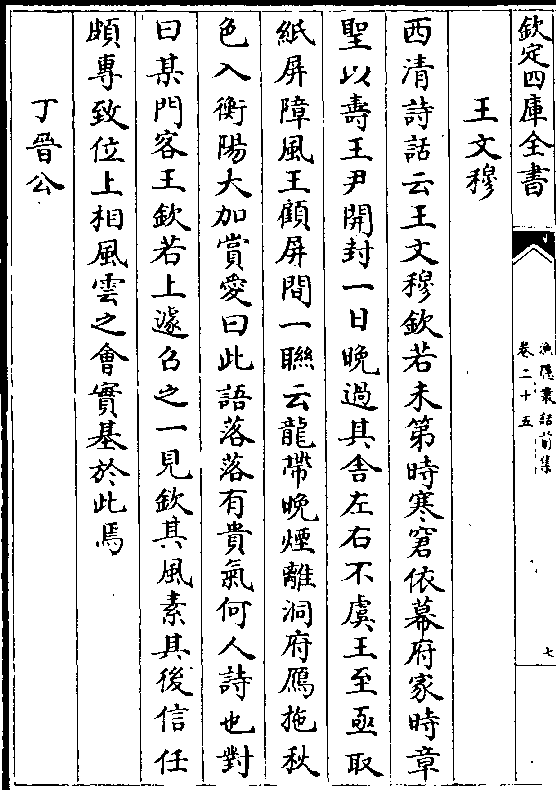 欽定四庫全書
漁隱叢話前集
卷二十五
七
王文穆
西清詩話云王文穆欽若未第時寒窘依幕府家時章
聖以壽王尹開封一日晚過其舎左右不虞王至亟取
紙屏障風王顧屏間一聯云龍帶晚煙離洞府鴈拖秋
色入衡陽大加賞愛曰此語落落有貴氣何人詩也對
曰某門客王欽若上遽召之一見欽其風素其後信任
頗專致位上相風雲之會實基於此焉
丁晉公